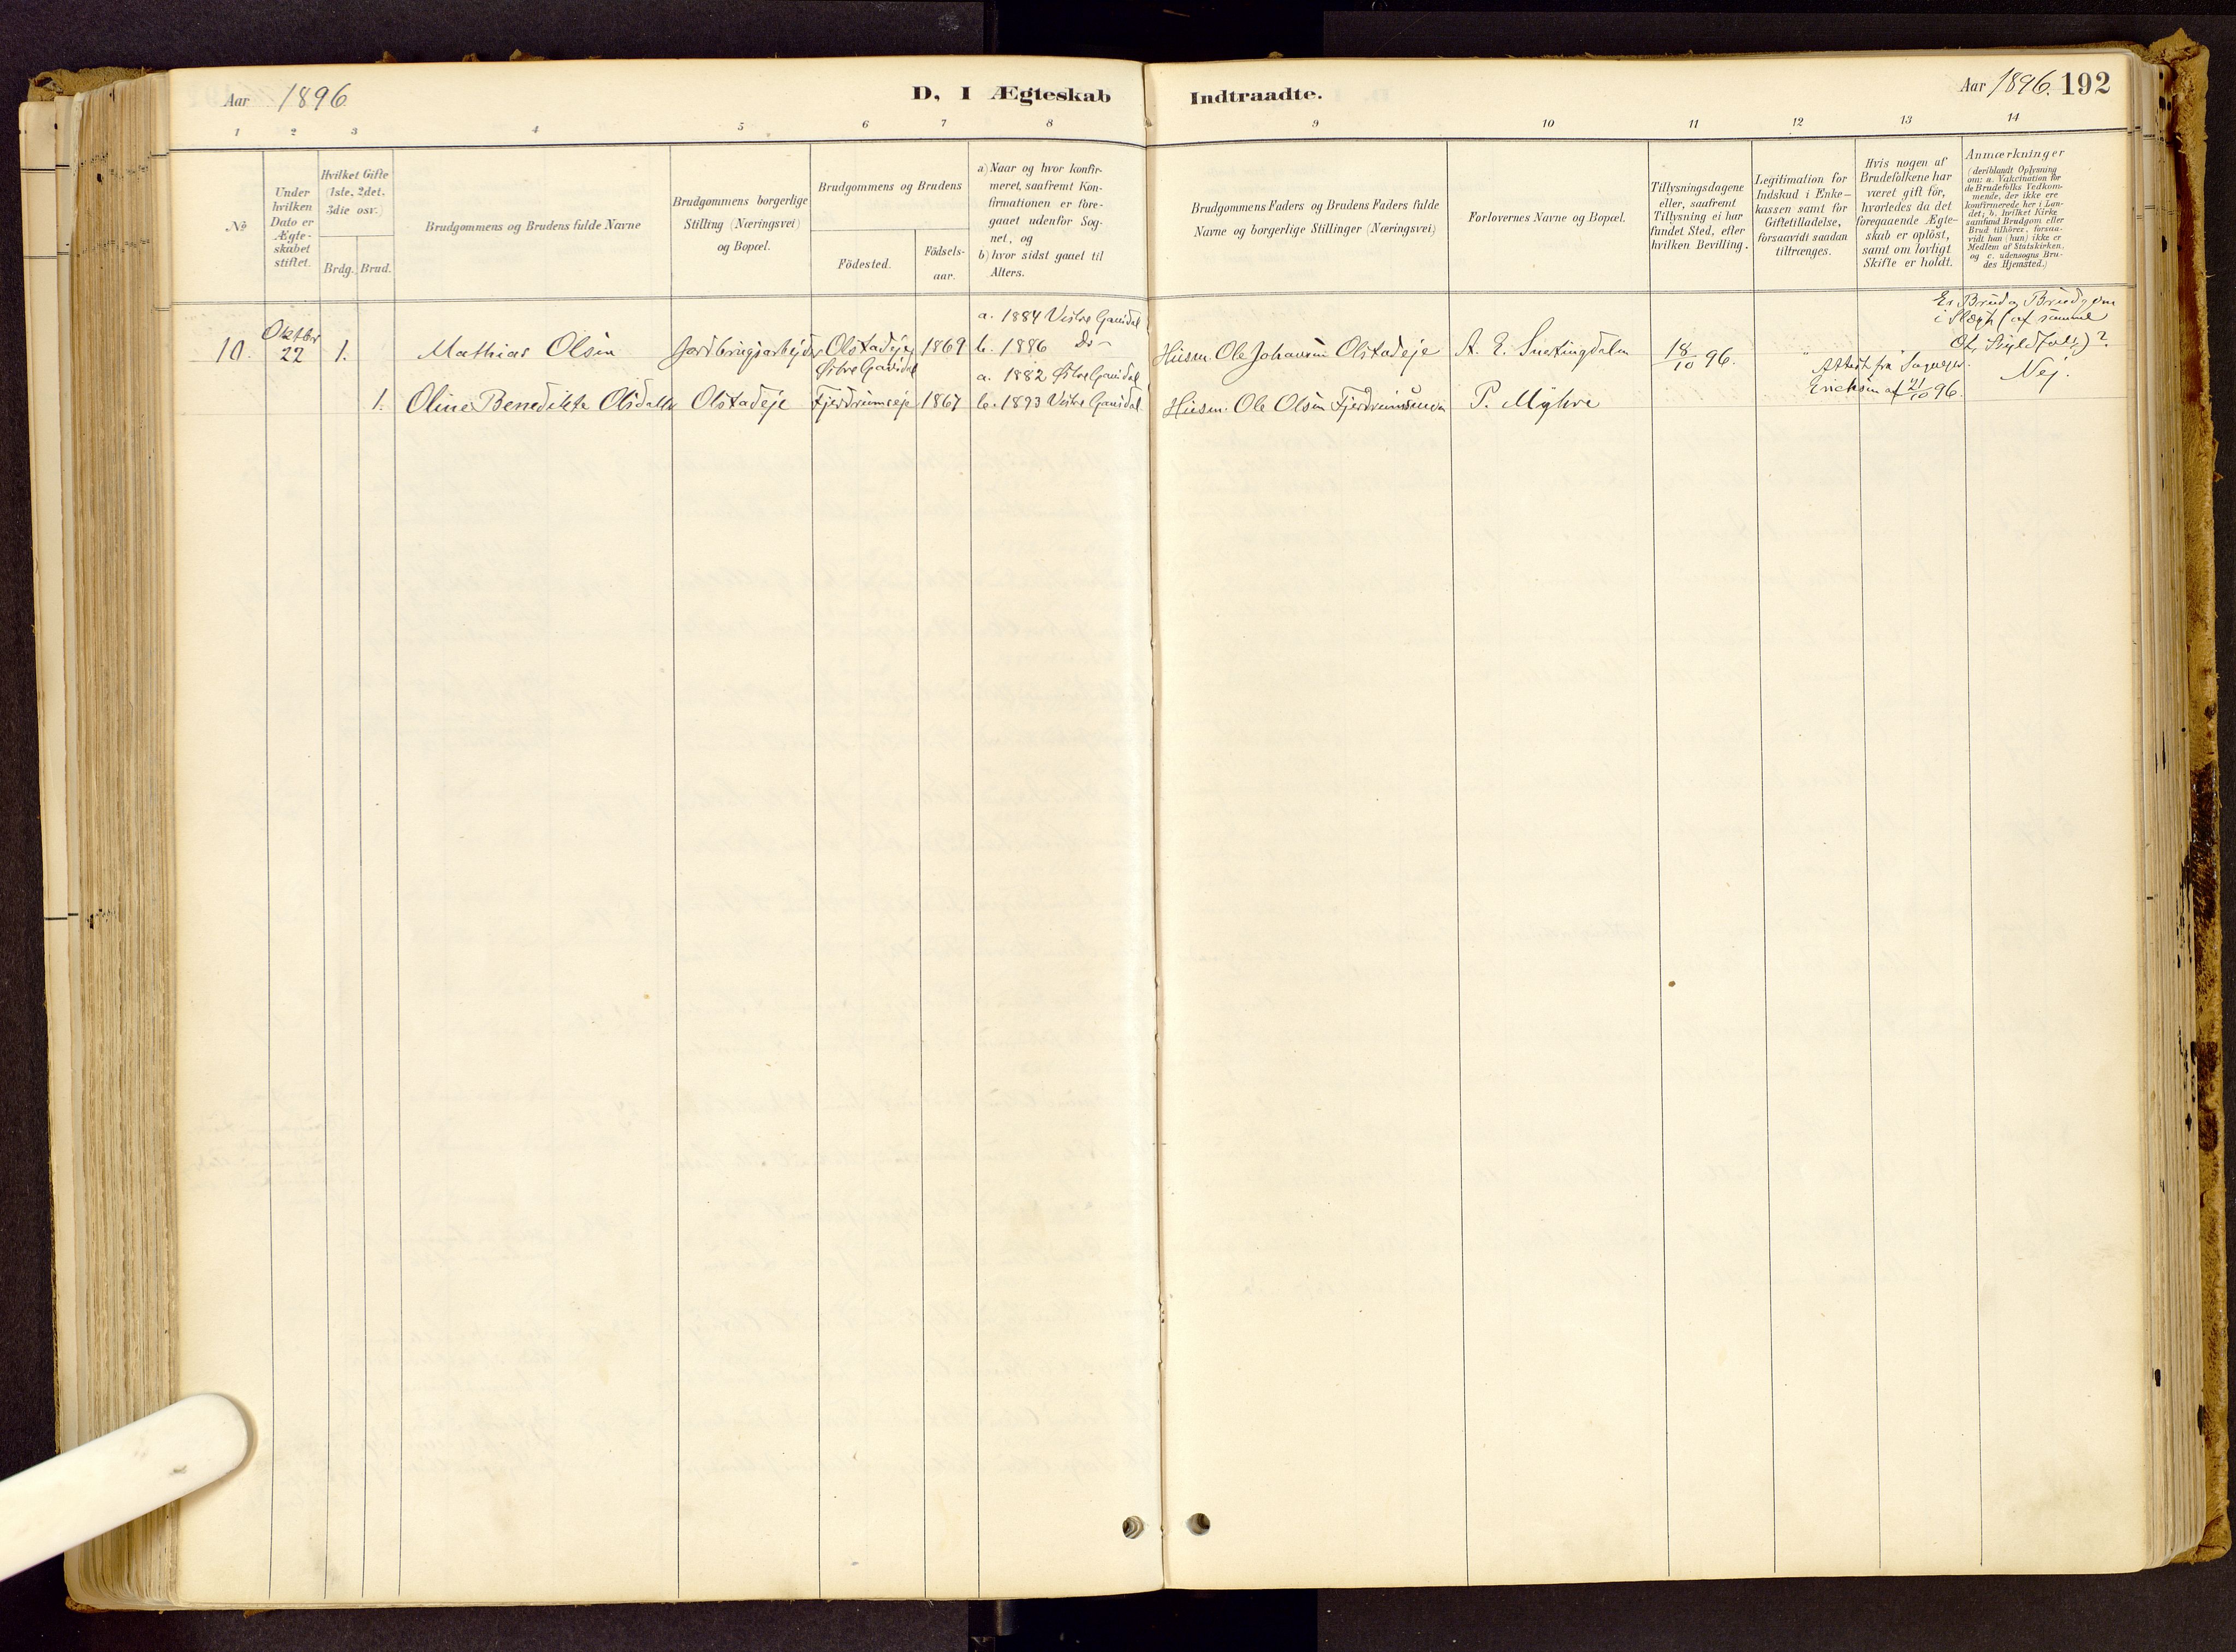 Aar 1896
D, I Ægteskab
Indtraadte.
Aar 1896. 192
1 2 3 4 5 6 7 8 9 10 11 12 13 14
No
Under
hvilken
Dato er
Ægte-
skabet
stiftet.
Hvilket Gifte
(1ste, 2det,
3die osv.)
Brdg. Brud.
Brudgommens og Brudens fulde Navne
Brudgommens borgerlige
Stilling (Næringsvei)
og Bopæl.
Brudgommens og Brudens
Födested.
Födsels-
aar.
a) Naar og hvor konfir-
meret, saafremt Kon-
firmationen er fore-
gaaet udenfor Sog-
net, og
b) hvor sidst gaaet til
Alters.
Brudgommens Faders og Brudens Faders fulde
Navne og borgerlige Stillinger (Næringsvei)
Forlovernes Navne og Bopæl.
Tillysningsdagene
eller, saafremt
Tillysning ei har
fundet Sted, efter
hvilken Bevilling.
Legitimation for
Indskud i Enke-
kassen samt for
Giftetilladelse,
forsaavidt saadan
tiltrænges.
Hvis nogen af
Brudefolkene har
været gift før,
hvorledes da det
foregaaende Ægte-
skab er oplöst,
samt om lovligt
Skifte er holdt.
Anmærkninger
(deriblandt Oplysning
om: a. Vakcination for
de Brudefolks Vedkom-
mende, der ikke ere
konfirmerede her i Lan-
det; b. hvilket Kirke
samfund Brudgom eller
Brud tilhører, forsaa-
vidt han (hun) ikke er
Medlem af Statskirken,
og c. udensogns Bru-
des Hjemsted.)
10.
Oktbr
22
1.
Mathias Olsen
Jordbrugsarbejder
Olstadeje
1869
a. 1884 Vestre Gausdal
b. 1886 Do
Husm. Ole Johansen Olstadeje
A. E.
18/10 96.
"
Er Brud og Brudgom
i Slægt (af samme
Nej.
1.
Oline Benedikte Olsdatter
Olstadeje
Østre Gausdal
Fjerdrumseje
1867
a. 1882 Østre Gausdal
b. 1893 Vestre Gausdal
Husm. Ole Olsen
P. Myhre
Attest fra Sognepr.
Erichsen af 21/10 96.